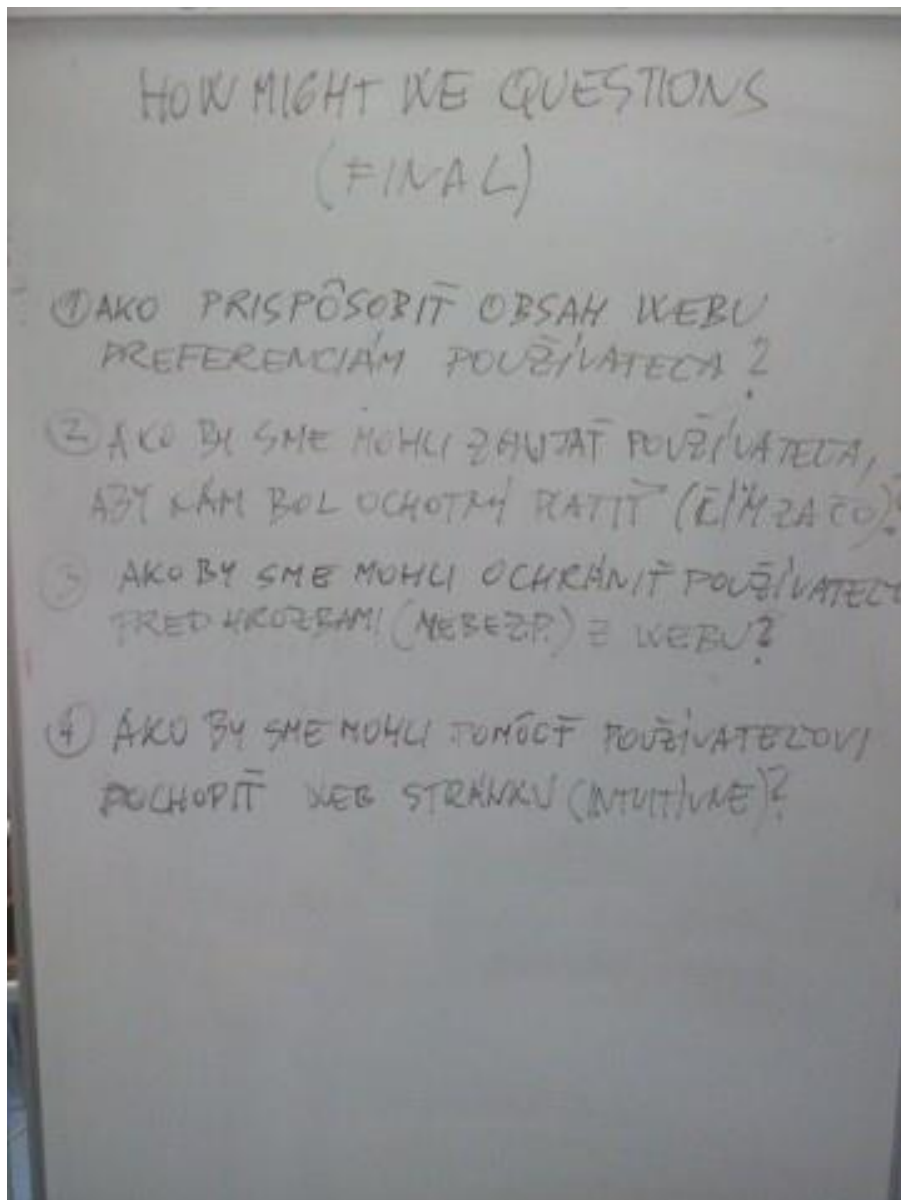 HOW MIGHT WE QUESTIONS
(FINAL)
① AKO PRISPÔSOBIŤ OBSAH WEBU
PREFERENCIÁM POUŽÍVATEĽA?
② AKO BY SME MOHLI ZAUJAŤ POUŽÍVATEĽA,
ABY NÁM BOL OCHOTNÝ PLATIŤ (ČÍM ZA ČO)?
③ AKO BY SME MOHLI OCHRÁNIŤ POUŽÍVATEĽA
PRED HROZBAMI (NEBEZP.) Z WEBU?
④ AKO BY SME MOHLI POMÔCŤ POUŽÍVATEĽOVI
POCHOPIŤ WEB STRÁNKU (INTUITÍVNE)?